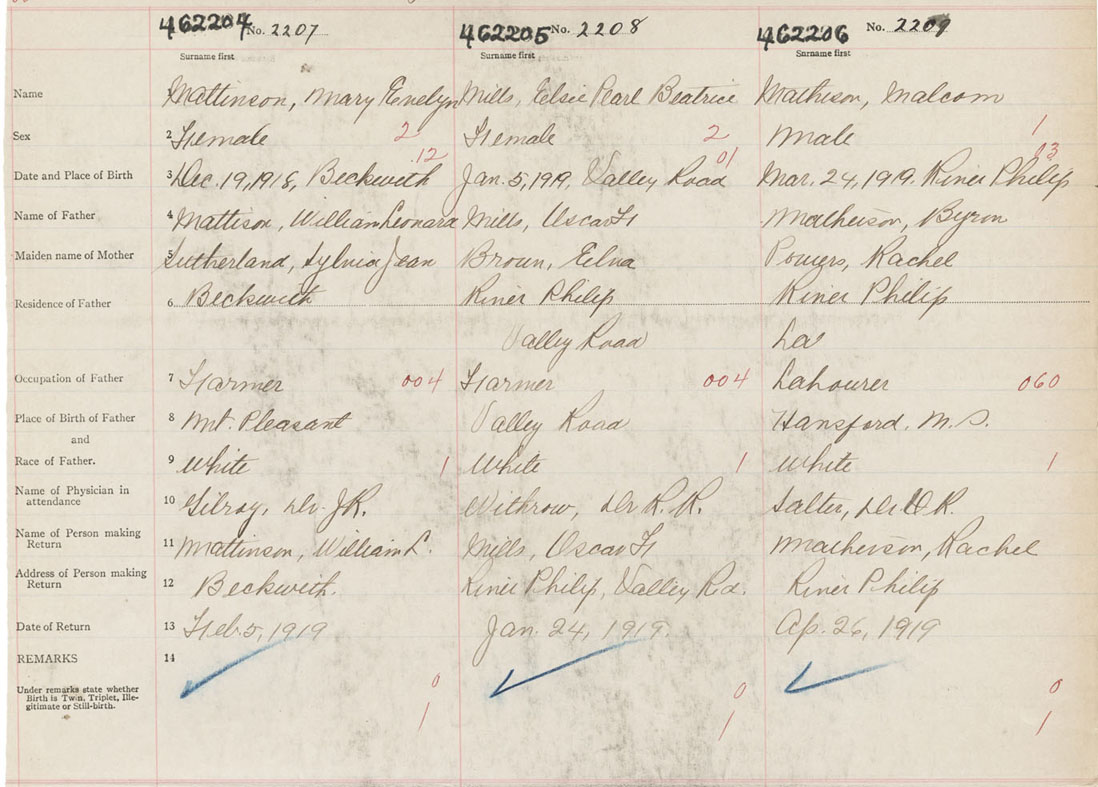 462204 No. 2207 462205 No. 2208 462206 No. 2209
Surname first Surname first Surname first
Name Mattinson, Mary Evelyn Mills, Elsie Pearl Beatrice Matheson, Malcom
Sex 2 Female 2 Female 2 Male 1
12 01 03
Date and Place of Birth 3 Dec. 19, 1918, Beckwith Jan. 5, 1919, Valley Road Mar. 24, 1919. River Philip
Name of Father 4 Mattison, William Leonard Mills, Oscar H Matheson, Byron
Maiden name of Mother 5 Sutherland, Sylvia Jean Brown, Edna Powers, Rachel
Residence of Father 6 Beckwith River Philip River Philip
Valley Road La
Occupation of Father 7 Farmer 004 Farmer 004 Labourer 060
Place of Birth of Father 8 Mt. Pleasant Valley Road Hansford. N.S.
and
Race of Father. 9 White 1 White 1 White 1
Name of Physician in
attendance 10 Gilroy, Dr. J.R. Withrow, Dr R.R. Salter, Dr R.
Name of Person making
Return 11 Mattinson, William L. Mills, Oscar H Matheson, Rachel
Address of Person making
Return 12 Beckwith. River Philip, Valley Rd. River Philip
Date of Return 13 Feb. 5, 1919 Jan. 24, 1919. Ap. 26, 1919
REMARKS 14
Under remarks state whether
Birth is Twin, Triplet, Ille-
gitimate or Still-birth.
0 0 0
1 1 1